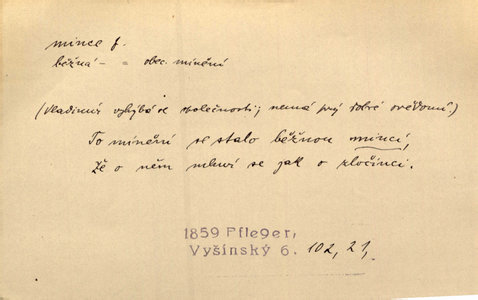 mince f.
běžná – = obec. mínění
(Vladimír vyhýbá se společnosti; nemá prý dobré svědomí)
To mínění se stalo běžnou mincí,
že o něm mluví se jak o zločinci.
1859 Pfleger,
Vyšínský 6. 102, 21,